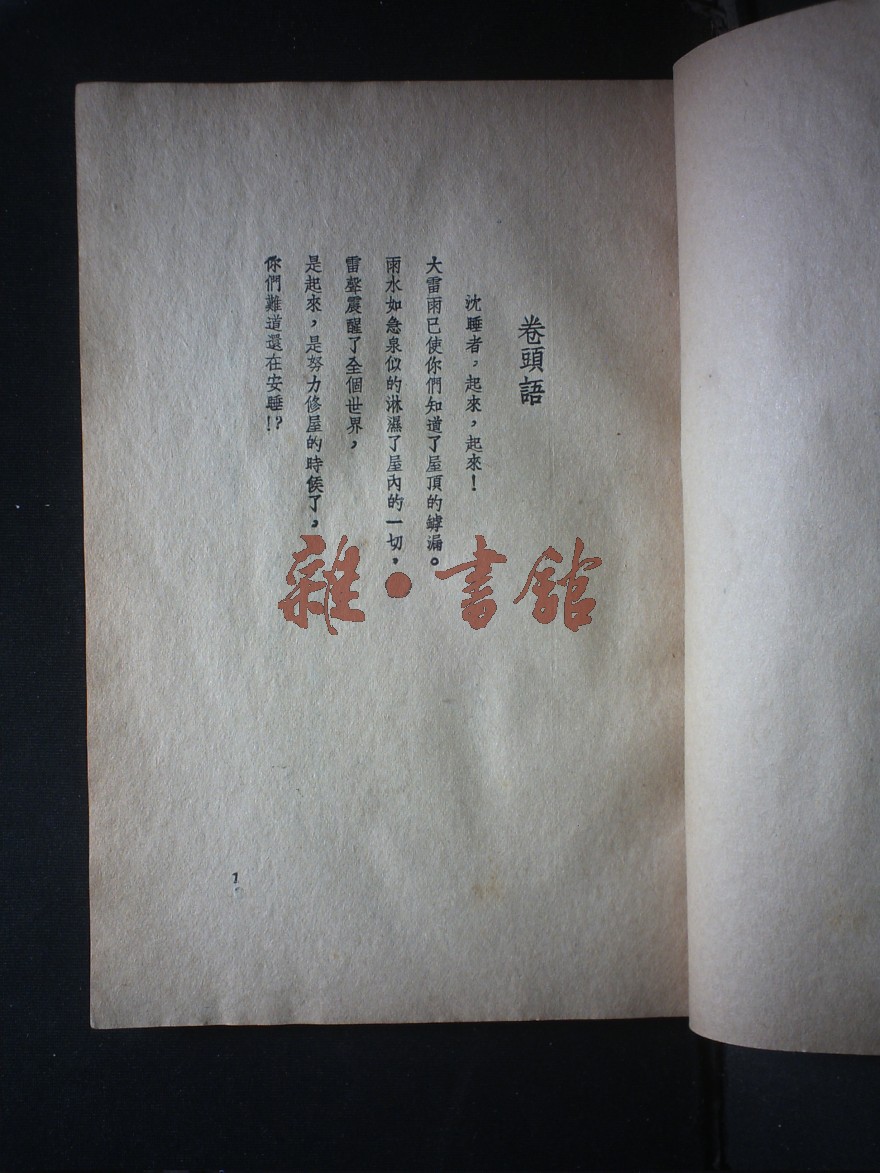 卷頭語
沈睡者，起來，起來！
大雷雨已使你們知道了屋頂的罅漏。
雨水如急泉似的淋濕了屋內的一切，
雷聲震醒了全個世界，
是起來，是努力修屋的時候了，
你們難道還在安睡！？
1
雜·書館